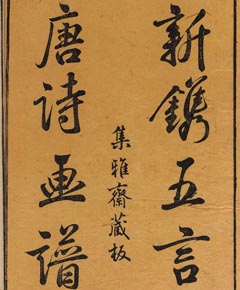 新鐫五言
集雅齋藏板
唐诗画譜